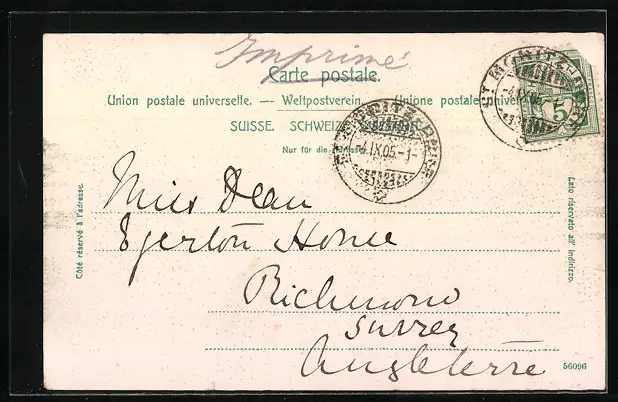 Imprimé
Carte postale.
Union postale universelle. — Weltpostverein. — Unione postale
SUISSE. SCHWEIZ.
Nur für die Adresse.
ST MORITZ
4 IX 05
5
4.IX.05-1-
Miss Dean
Egerton House
Richmond
Surrey
Angleterre
Côté réservé à l'adresse.
Lato riservato all' indirizzo.
56096